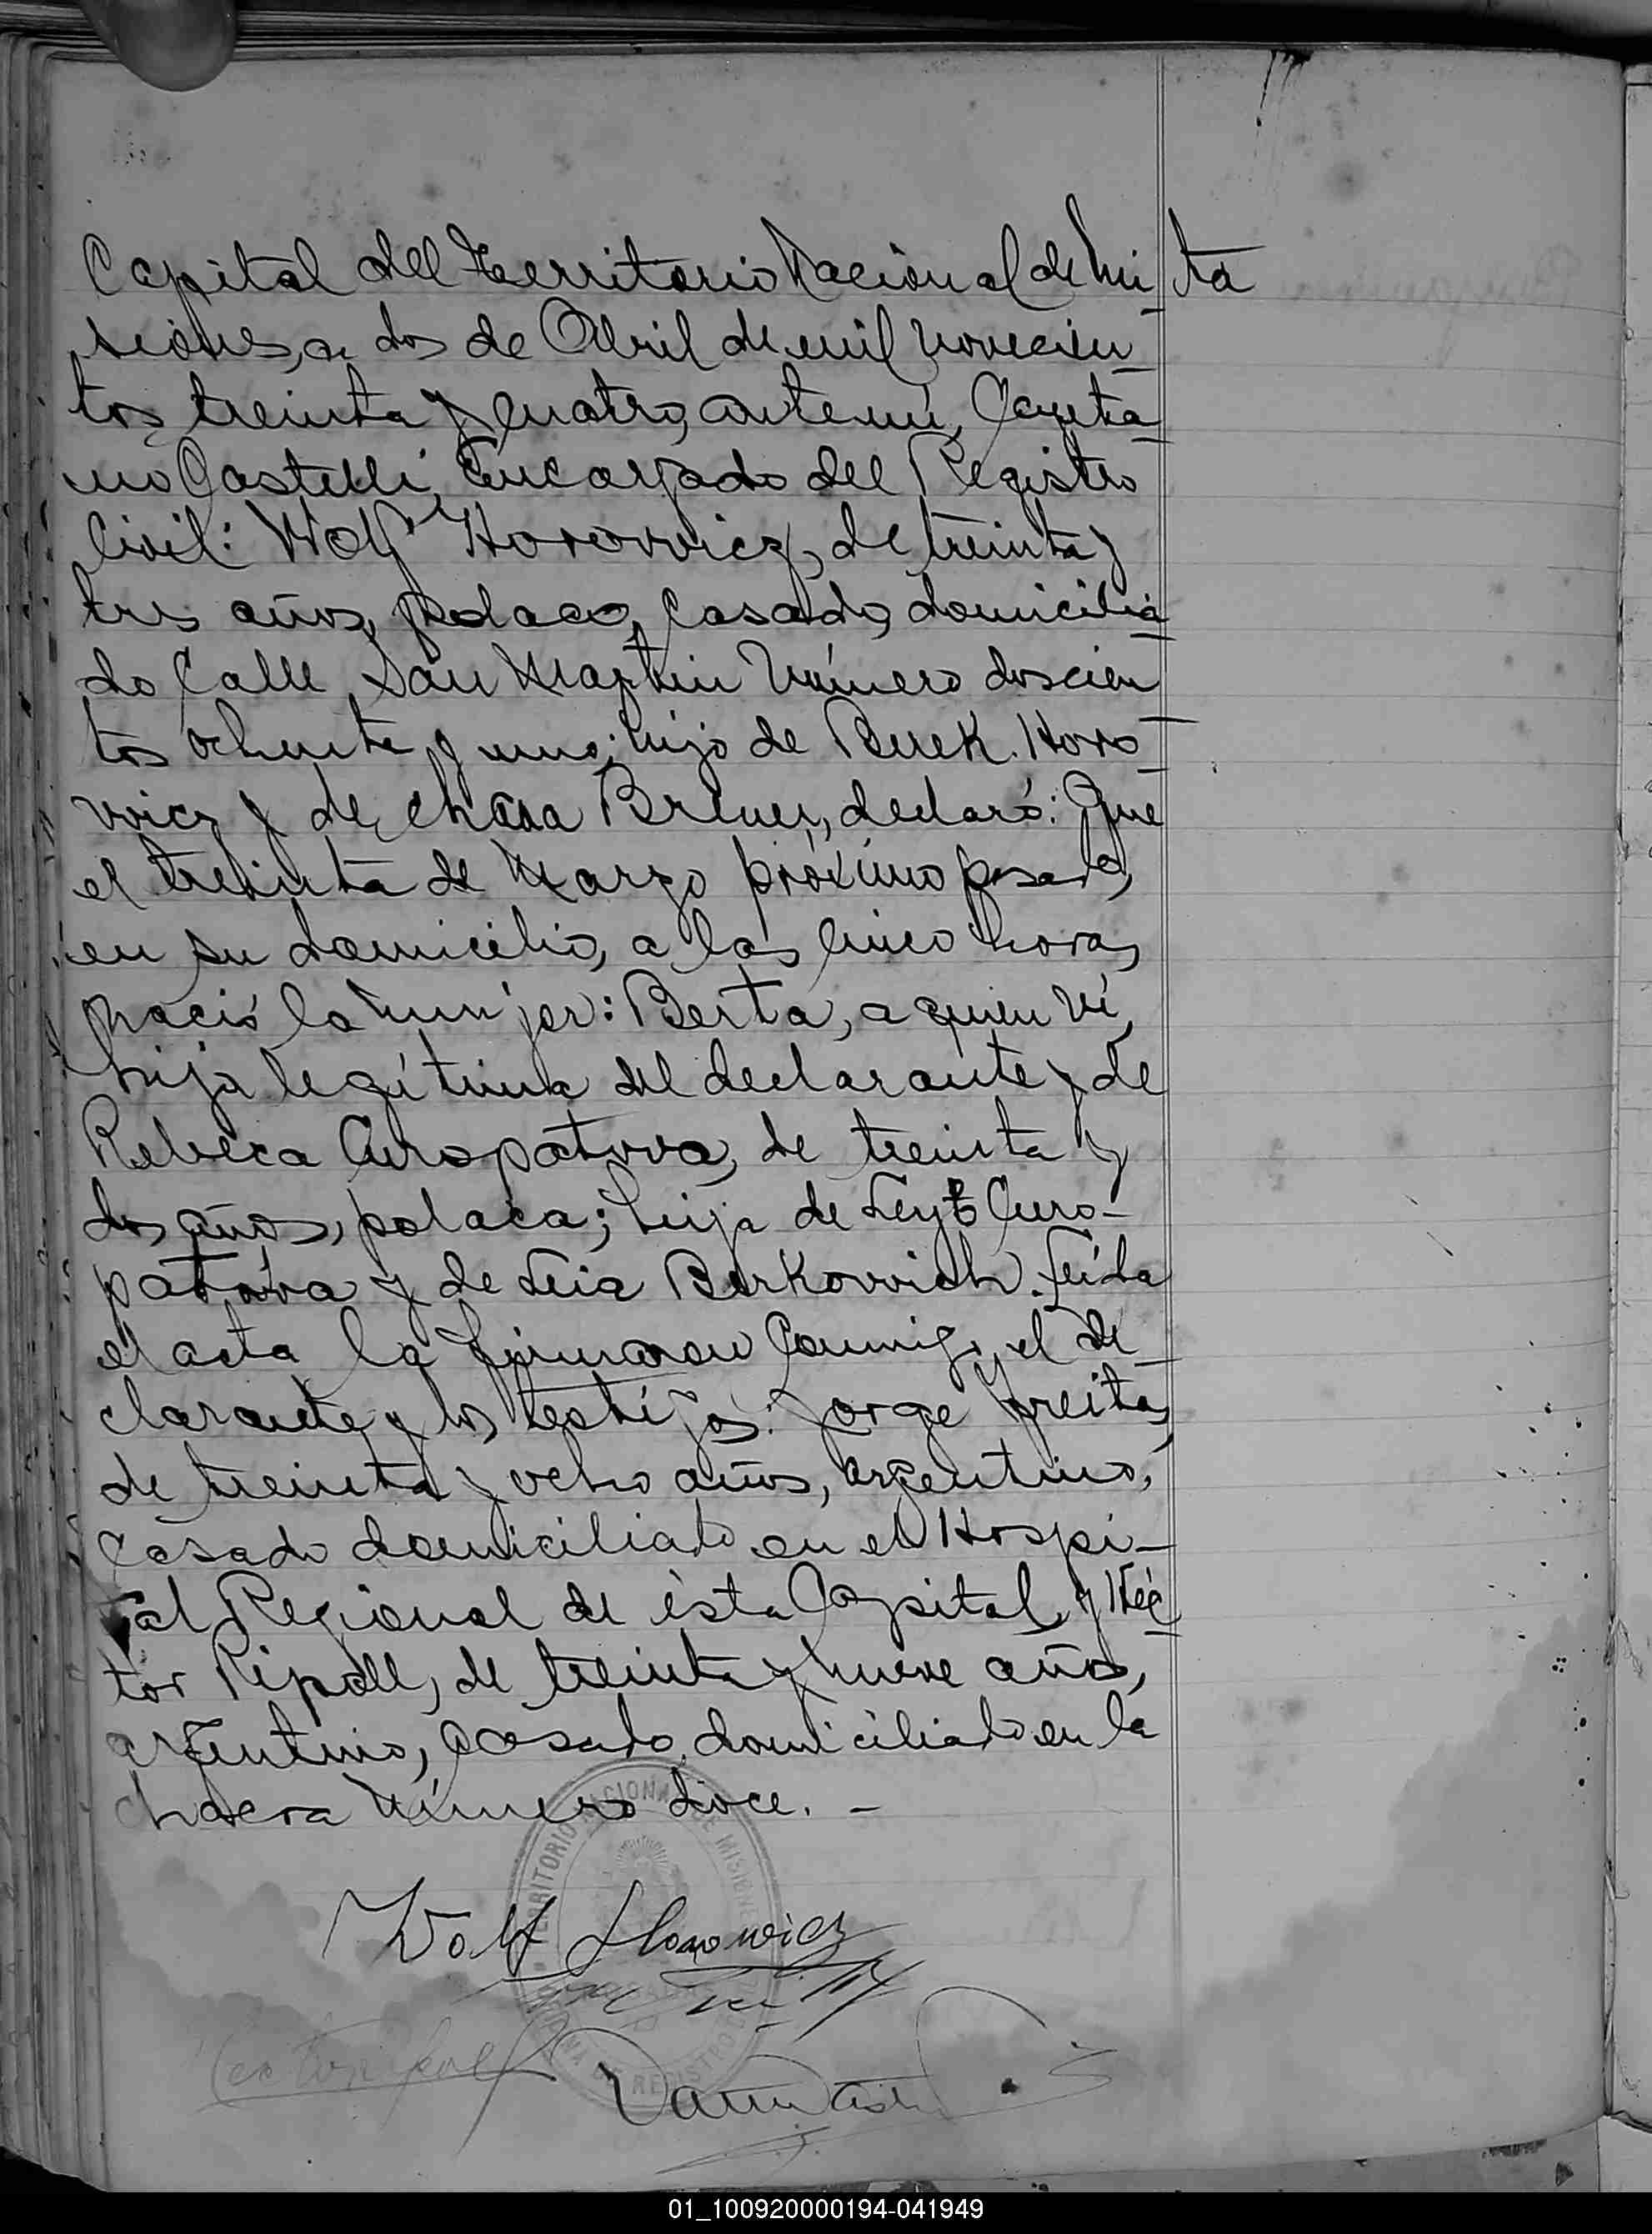 Capital del Territorio Nacional de Mi
ta
siones, a dos de Abril de mil novecien
tos treinta y cuatro, ante mí, Cayeta
no Castelli, Encargado del Registro
Civil: Wolf Horovvicz, de treinta y
tres años, polaco, casado, domicilia
do Calle San Martin Número doscien
tos ochenta y uno; hijo de Berek Horo
vvicz y de Chana Brener, declaró: Que
el treinta de Marzo próximo pasado,
en su domicilio, a las cinco horas,
nació la mujer: Berta, a quien ví,
hija legítima del declarante y de
Rebeca Auropatvva, de treinta y
dos años, polaca; hija de Leyb Auro-
patvva y de Leia Berkovvich. Leída
el acta la firmaron conmigo, el de
clarante y los testigos: Jorge Freitas,
de treinta y ocho años, argentino,
casado domiciliado en el Hospi-
tal Regional de ésta Capital, y Héc
tor Ripoll, de treinta y nueve años,
argentino, casado, domiciliado en la
chacra Número doce. -
Wolf Horowicz
TERRITORIO NACIONAL DE MISIONES
REGISTRO
Hector Ripoll
01_100920000194-041949